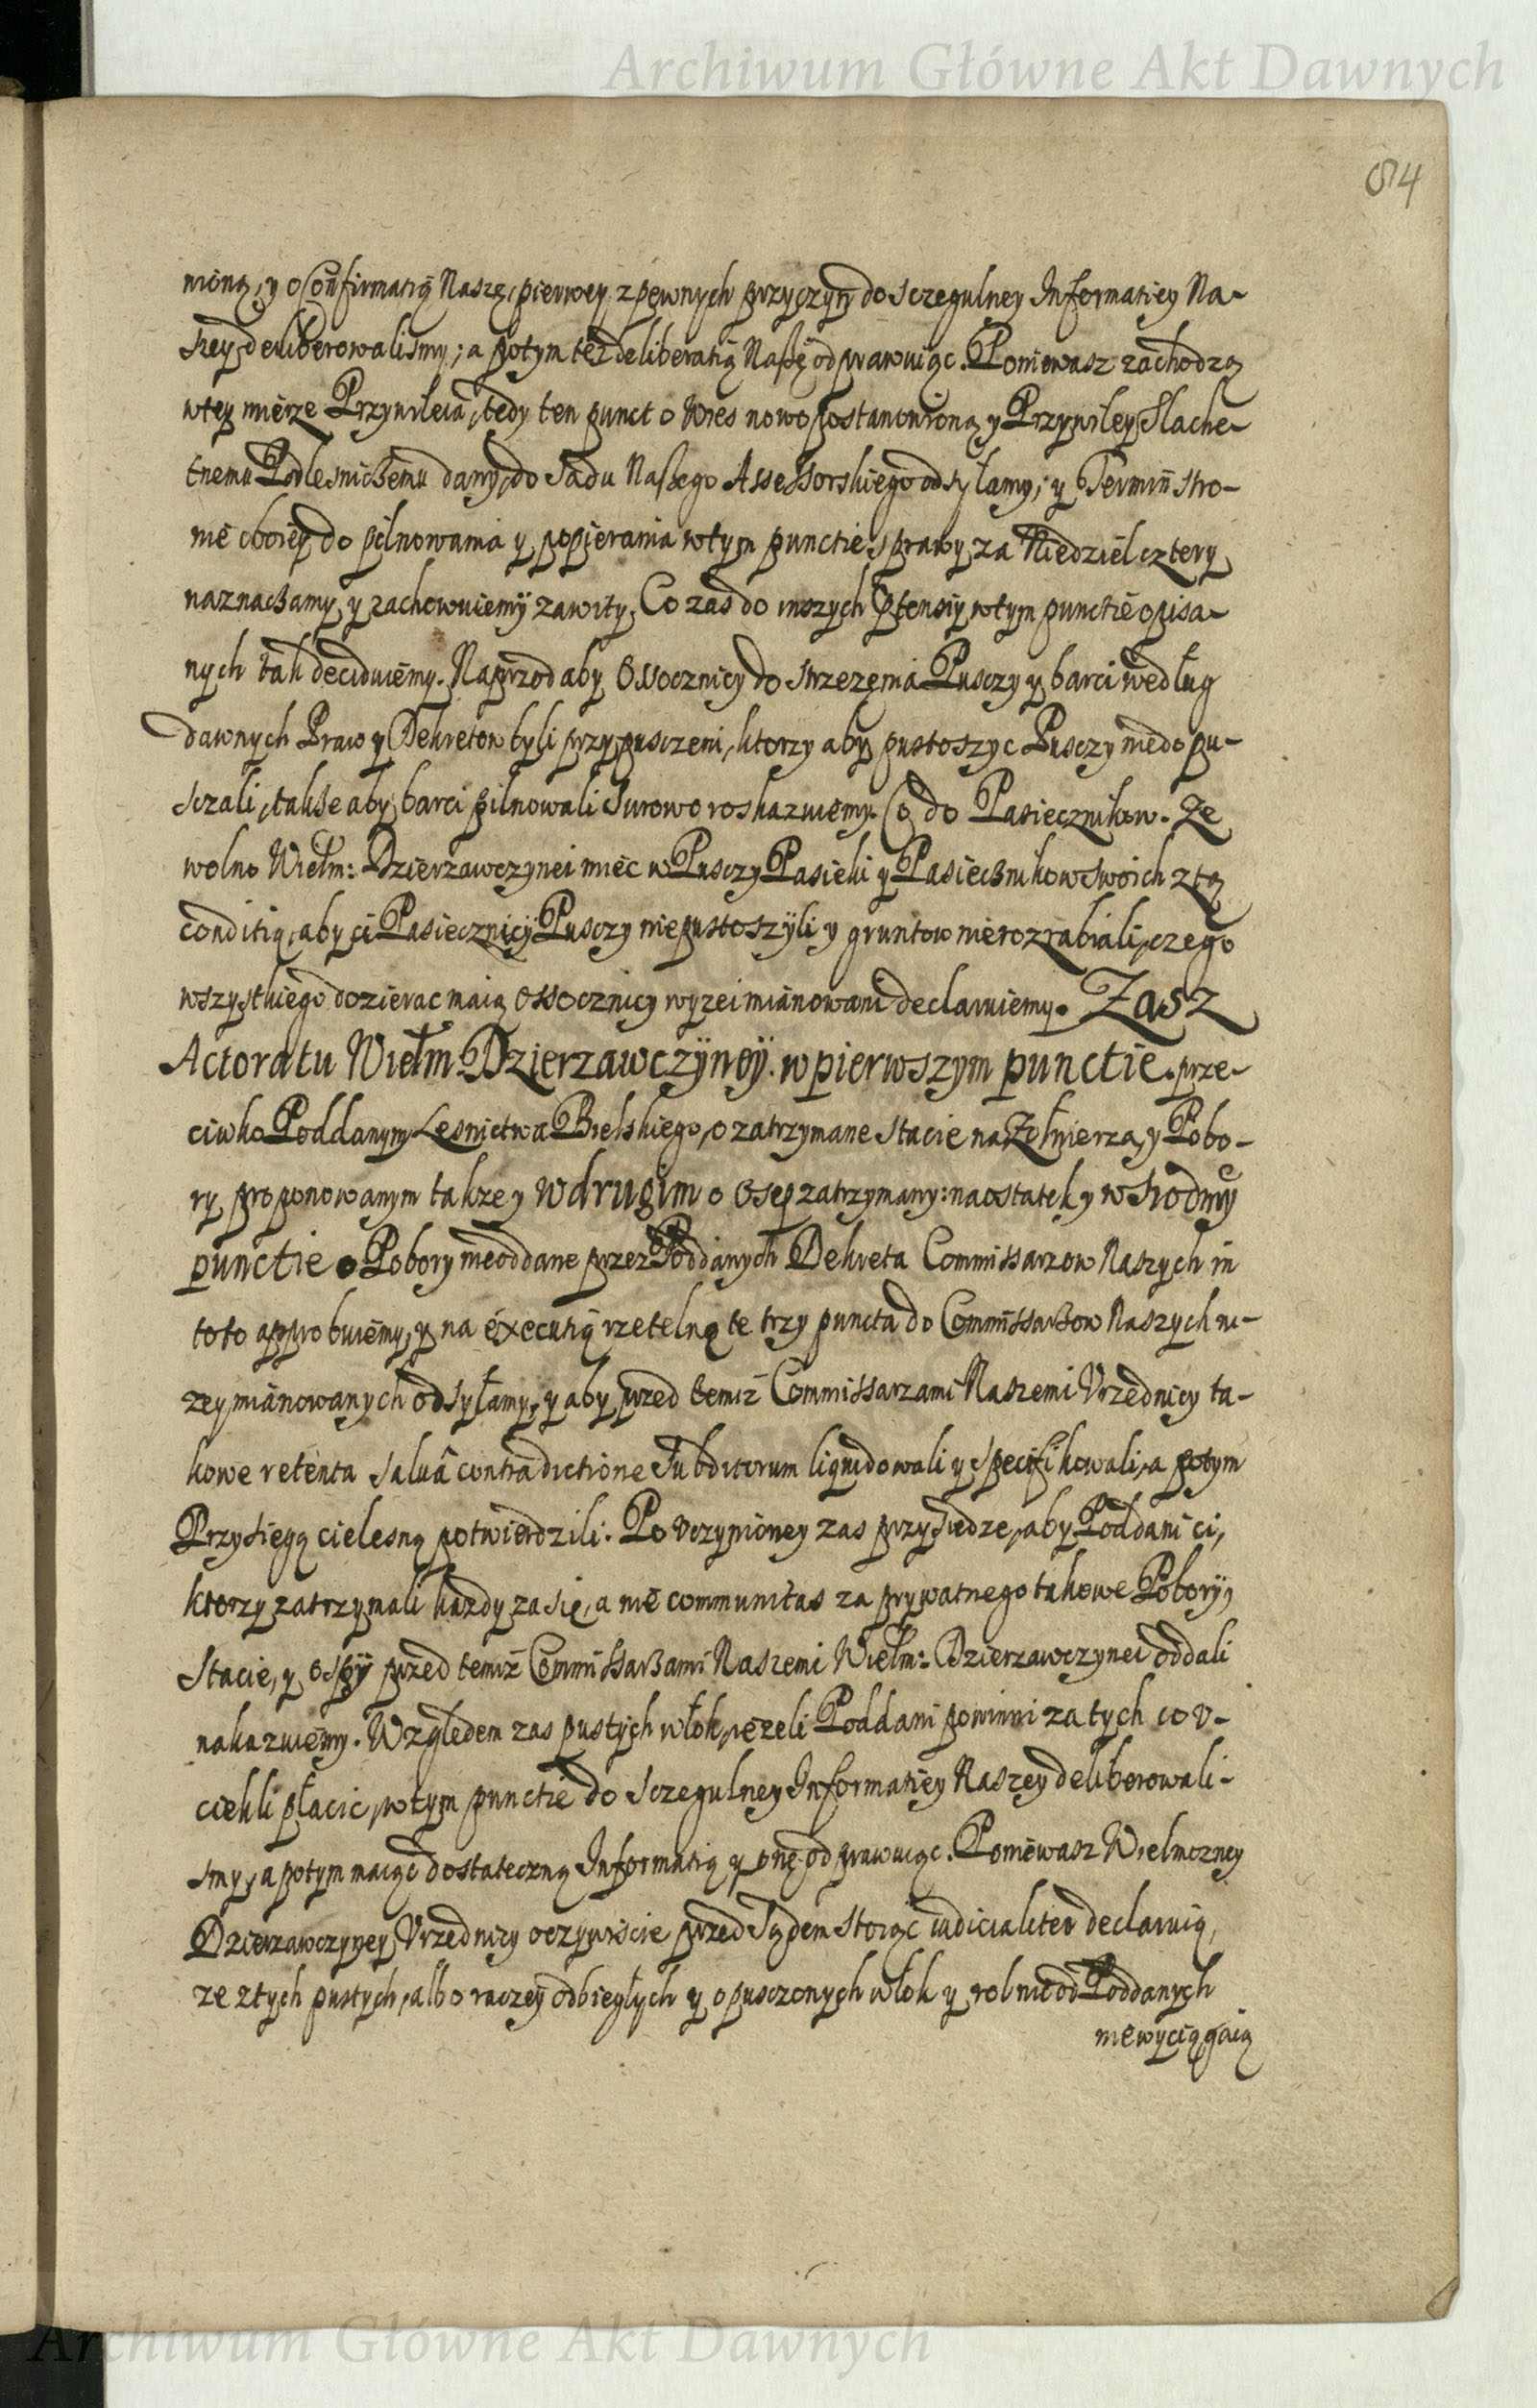 Archiwum Główne Akt Dawnych
84
nioną, y o Confirmatią Naszę, pierwey z pewnych przyczyn do sczegulney Informatiey Na-
szey deliberowalismy; a potym też deliberatią Naszę odprawuiąc. Poniewasz zachodzą
w tey mierze Przywileia, tedy ten punct o Wies nowo postanowioną y Przywiley Slache-
tnemu Podlesniczemu dany, do Sadu Naszego Assessorskiego odsyłamy; y Termin stro-
nie oboiey do pilnowania y popierania w tym punctie sprawy za Niedziel cztery
naznaczamy, y zachowuiemy zawity. Co zas do inszych ptensiy w tym punctie opisa-
nych tak deciduiemy. Naprzod aby Ossocznicy do strzezęnia Pusczy y barci według
dawnych Praw y Dekretow byli przypusczeni, ktorzy aby pustoszyc Pusczy nie dopu-
sczali, takze aby barci pilnowali surowo roskazuiemy. Co do Pasiecznikow. Ze
wolno Wielm: Dzierzawczynei miec w Pusczy Pasieki y Pasiecznikow swoich z tą
conditią, aby ci Pasiecznicy Pusczy nie pustoszyli y gruntow nie rozrabiali, czego
wszystkiego dozierac maią Ossocznicy wyzei mianowani declaruiemy. Zasz
Actoratu Wielm Dzierzawczyney. w pierwszym punctie. prze-
ciwko Poddanym Lesnictwa Bielskiego, o zatrzymane Stacie na Zołnierza, y Pobo-
ry proponowanym takze y w drugim o Osep zatrzymany: na ostatek y w siodmy
punctie o Pobory nie oddane przez Poddanych Dekreta Commissarzow Naszych in
toto approbuiemy, y na executią rzetelną te trzy puncta do Commissarzow Naszych ni-
zey mianowanych odsyłamy, y aby przed temiz Commissarzami Naszemi Vrzednicy ta-
kowe retenta salvâ contradictione Subditorum liquidowali y specifikowali, a potym
Przysięgą cielesną potwierdzili. Po vczynioney zas przysiedze, aby Poddani ci,
ktorzy zatrzymali kazdy za się, a nie communitas za prywatnego takowe Pobory,
Stacie, y ospy przed temiz Commissarzami Naszemi Wielm: Dzierzawczynei oddali
nakazuiemy. Względem zas pustych włok, iezeli Poddani powinni za tych co v-
ciekli płacic, w tym punctie do sczegulney Informatiey Naszey deliberowali-
smy, a potym maiąc dostateczną Informatią y onę odprawuiąc. Poniewasz Wielmozney
Dzierzawczyney Vrzednicy oczywiscie przed Sądem stoiąc iudicialiter declaruią,
ze z tych pustych, albo raczey odbiegłych y opusczonych włok y rol nic od Poddanych
nie wyciągaią
Archiwum Główne Akt Dawnych